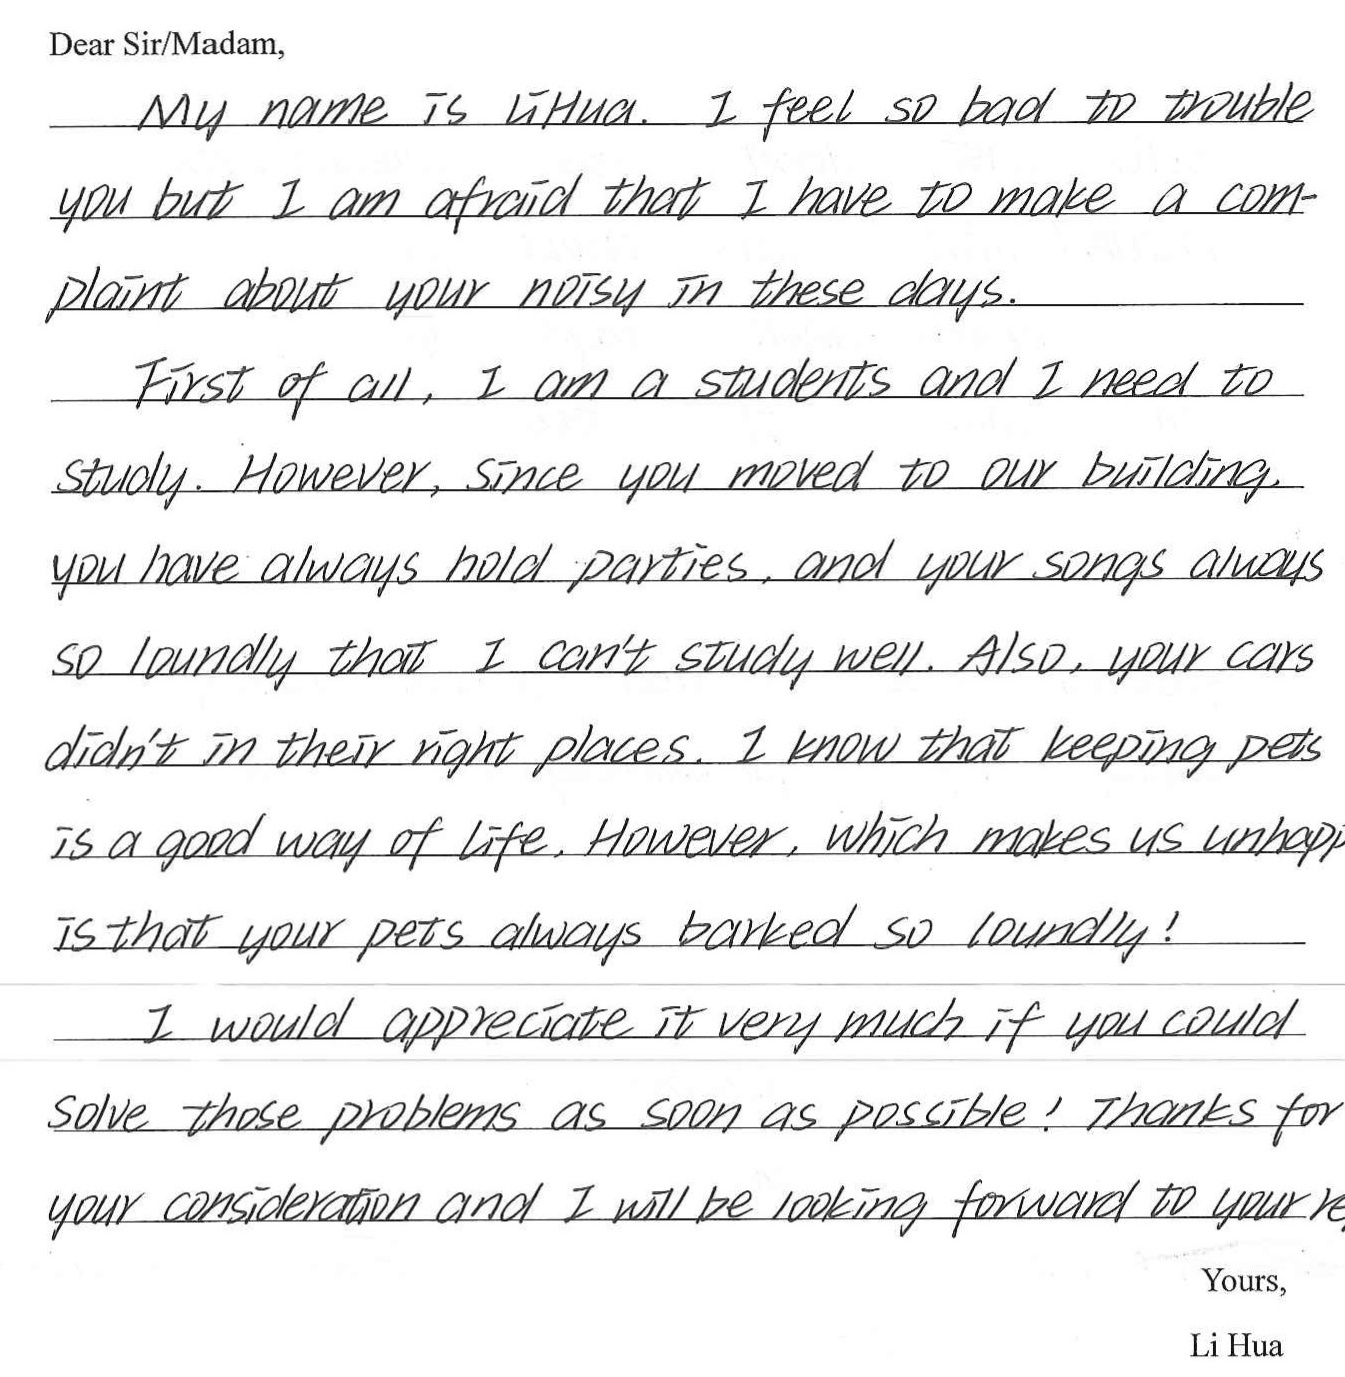 Dear Sir/Madam,
My name is LiHua. I feel so bad to trouble
you but I am afraid that I have to make a com-
plaint about your noisy in these days.
First of all, I am a students and I need to
study. However, since you moved to our building,
you have always hold parties, and your songs always
so loundly that I can't study well. Also, your cars
didn't in their right places. I know that keeping pets
is a good way of life. However, which makes us unhapp
is that your pets always barked so loundly!
I would appreciate it very much if you could
solve those problems as soon as possible! Thanks for
your consideration and I will be looking forward to your re
Yours,
Li Hua